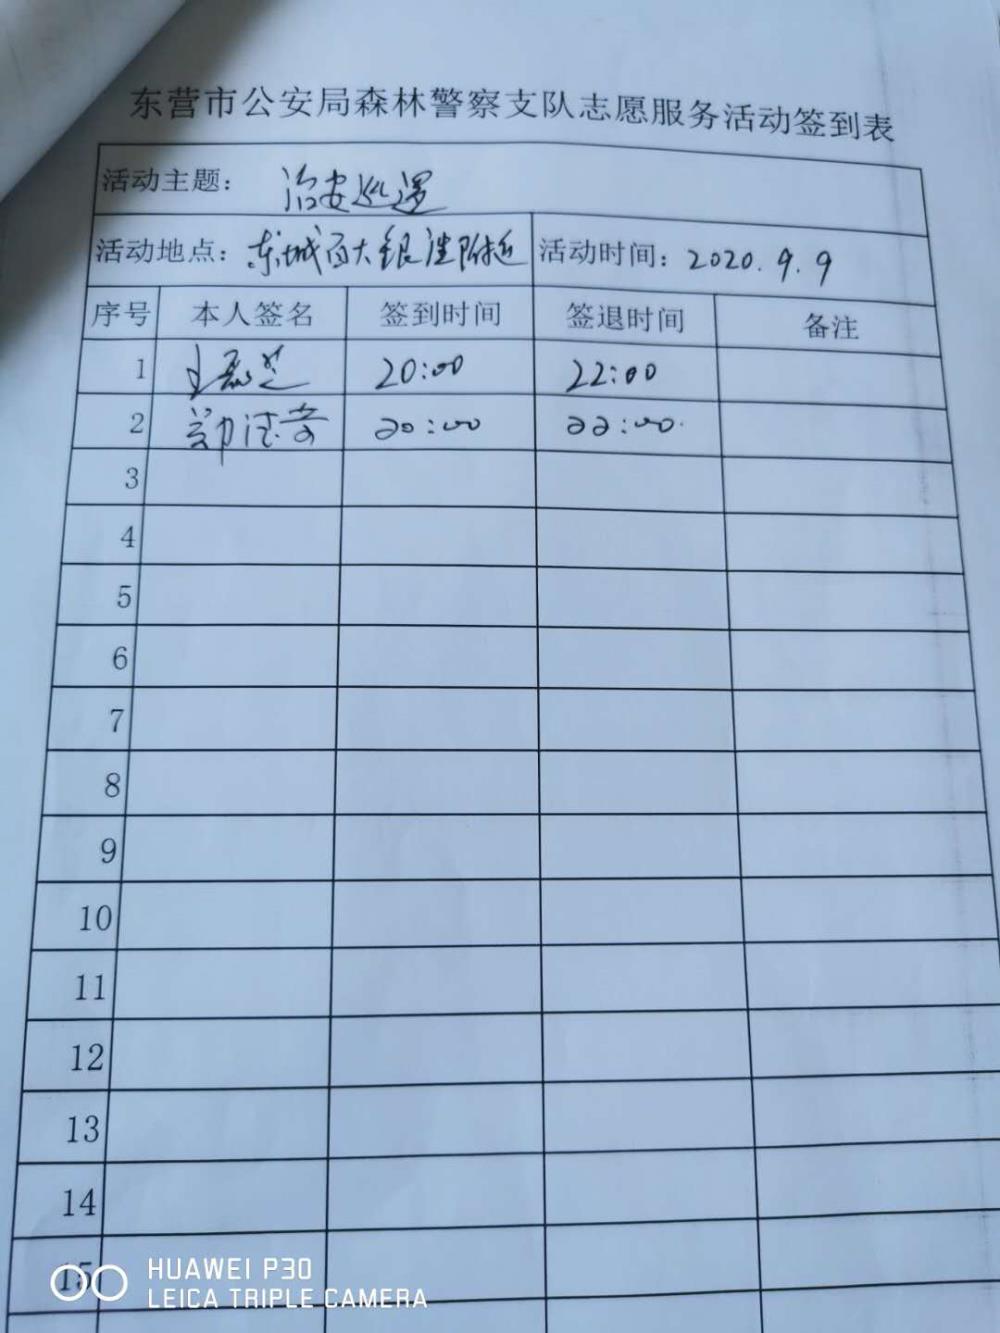 东营市公安局森林警察支队志愿服务活动签到表
活动主题： 治安巡逻
活动地点：东城百大银座附近 活动时间：2020.9.9
序号 本人签名 签到时间 签退时间 备注
1 20:00 22:00
2 20:00 22:00
3
4
5
6
7
8
9
10
11
12
13
14
15
HUAWEI P30
LEICA TRIPLE CAMERA